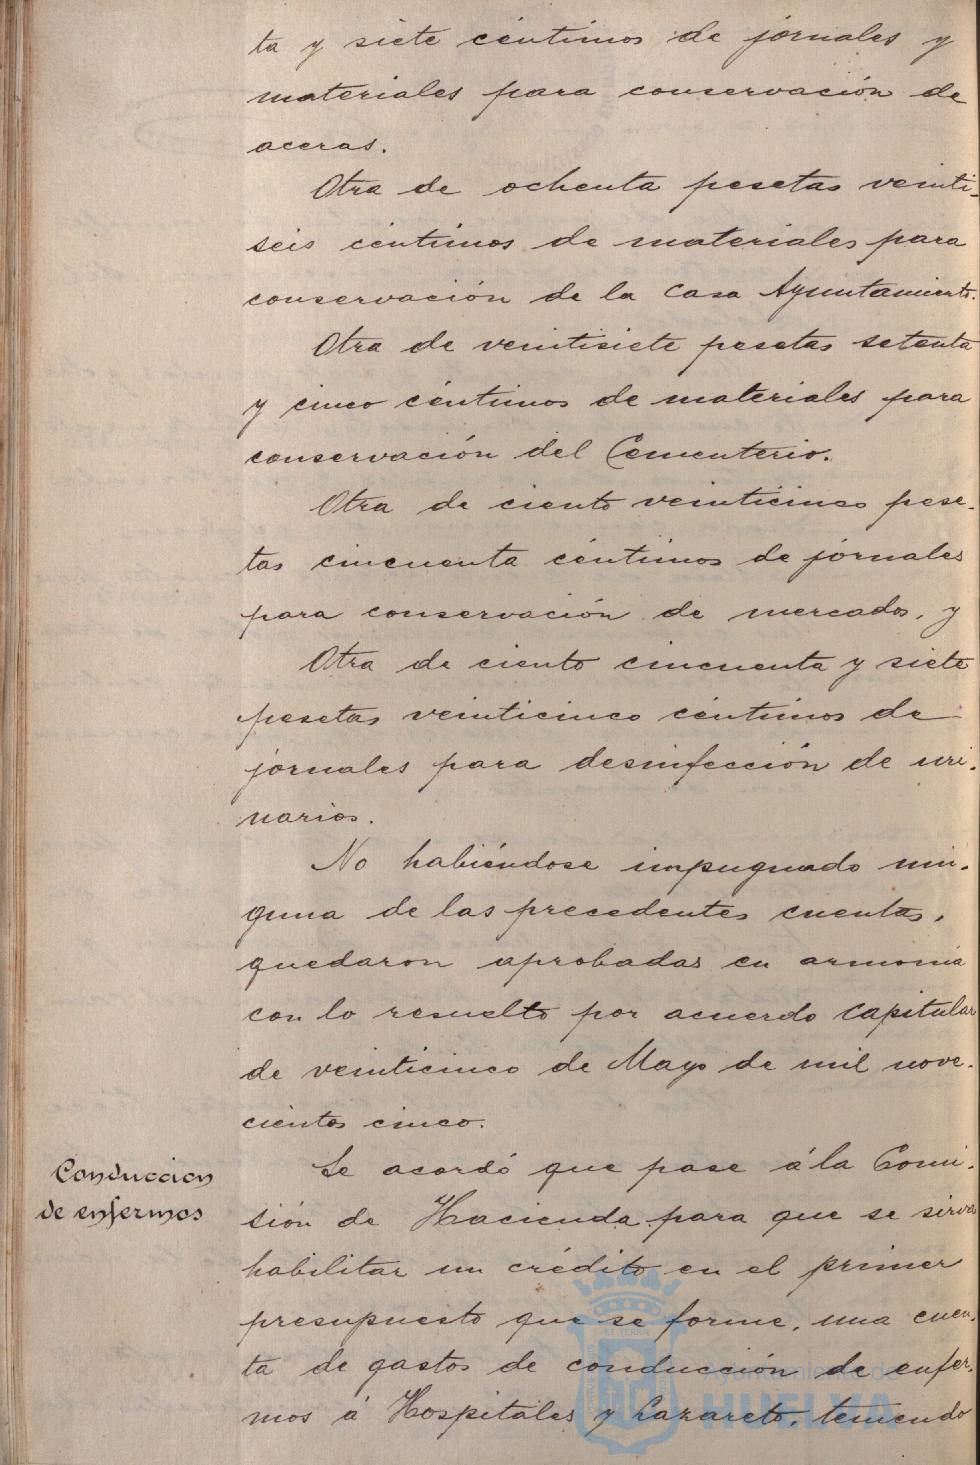 ta y siete céntimos de jornales y
materiales para conservación de
aceras.
Otra de ochenta pesetas veinti-
seis céntimos de materiales para
conservación de la Casa Ayuntamiento.
Otra de veintisiete pesetas setenta
y cinco céntimos de materiales para
conservación del Cementerio.
Otra de ciento veinticinco pese-
tas cincuenta céntimos de jornales
para conservación de mercados, y
Otra de ciento cincuenta y siete
pesetas veinticinco céntimos de
jornales para desinfección de uri-
narios.
No habiéndose impugnado nin-
guna de las precedentes cuentas,
quedaron aprobadas en armonía
con lo resuelto por acuerdo capitular
de veinticinco de Mayo de mil nove-
cientos cinco.
Conduccion
de enfermos
Se acordó que pase á la Comi-
sión de Hacienda para que se sirva
habilitar un crédito en el primer
presupuesto que se forme, una cuen-
ta de gastos de conducción de enfer-
mos á Hospitales y Lazareto, teniendo
Ayuntamiento de
HUELVA